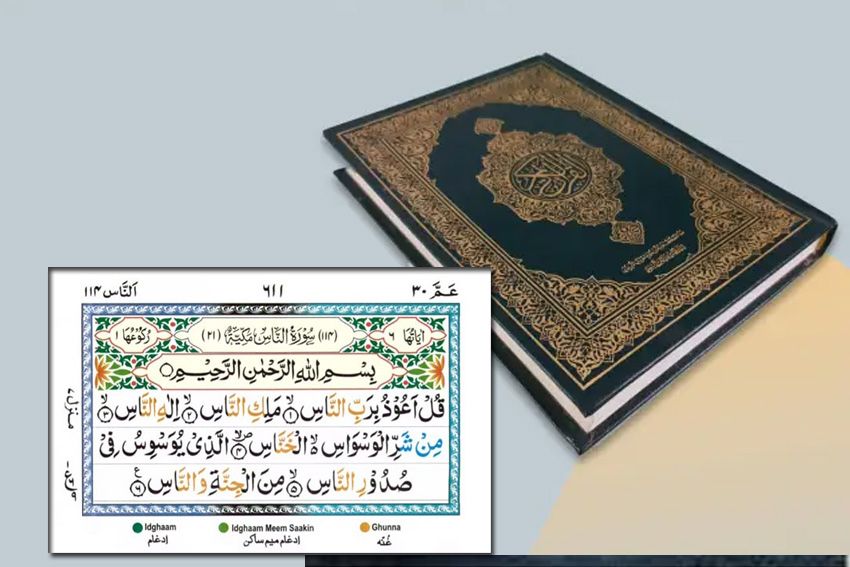 القرآن الكريم
عَمَّ ٣٠ ٦١١ اَلنَّاس ١١٤
اٰيَاتُهَا ٦ (١١٤) سُوْرَةُ النَّاسِ مَكِّيَّةٌ (٢١) رُكُوْعُهَا ١
بِسْمِ اللّٰهِ الرَّحْمٰنِ الرَّحِيْمِ
قُلْ اَعُوْذُ بِرَبِّ النَّاسِ ۙ۱ مَلِكِ النَّاسِ ۙ۲ اِلٰهِ النَّاسِ ۙ۳
مِنْ شَرِّ الْوَسْوَاسِ ۙ۬ الْخَنَّاسِ ۪ۙ۴ الَّذِيْ يُوَسْوِسُ فِيْ
صُدُوْرِ النَّاسِ ۙ۵ مِنَ الْجِنَّةِ وَالنَّاسِ ۶
منزل ٧
Idghaam
إدغام
Idghaam Meem Saakin
إدغام ميم ساكن
Ghunna
غُنّه